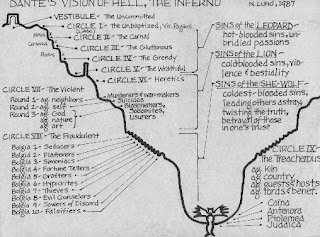 DANTE'S VISION OF HELL, THE INFERNO
N. LUND, 1987
VESTIBULE - The Uncommitted
CIRCLE I - The Unbaptised, Vir. Pagans
(Limbo)
CIRCLE II - The Carnal
CIRCLE III - The Gluttonous
CIRCLE IV - The Greedy
CIRCLE V - The Wrathful
CIRCLE VI - Heretics
Minos
Cerberus
Plutus
CIRCLE VII - The Violent
Round 1 - ag. neighbors
Round 2 - ag. self
Round 3 - ag. God
ag. nature
ag. art
Murderers & war-makers
Suicides
Blasphemers
Sodomites,
Usurers
CIRCLE VIII - The Fraudulent
Bolgia 1 - Seducers
Bolgia 2 - Flatterers
Bolgia 3 - Simoniacs
Bolgia 4 - Fortune Tellers
Bolgia 5 - Grafters
Bolgia 6 - Hypocrites
Bolgia 7 - Thieves
Bolgia 8 - Evil Counselors
Bolgia 9 - Sowers of Discord
Bolgia 10 - Falsifiers
SINS of the LEOPARD -
hot-blooded sins, un-
bridled passions
SINS of the LION -
coldblooded sins, vio-
lence & bestiality
SINS of the SHE-WOLF -
coldest-blooded sins,
leading others astray,
twisting the truth,
betrayal of those
in one's trust
CIRCLE IX -
The Treacherous
ag. Kin
ag. country
ag. guests & hosts
ag. lords & bener.
Caina
Antenora
Ptolemea
Judaica